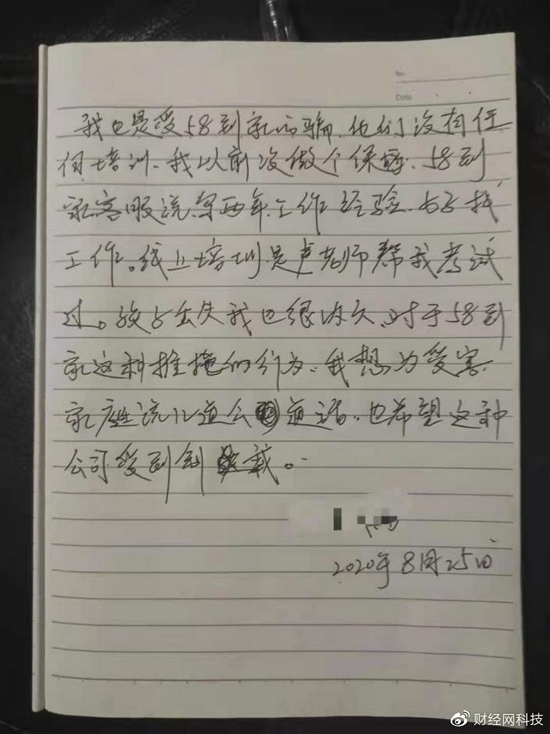 No
Date
我也是受58到家的骗,他们没有任
何培训,我以前没做个保姆,58到
家客服说,写两年工作经验,好找
工作。线上培训是卢老师帮我考试
过。孩子丢失我也很,对于58到
家这种推掩的行为,我想为受害
家庭说几道公道话,也希望这种
公司受到制裁。
2020年8月25日
财经网科技